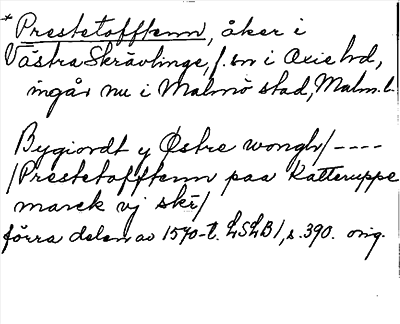 * Prestetofftenn, åker i
Västra Skrävlinge, f. sn i Oxie hd,
ingår nu i Malmö stad, Malm. l.
Bygiordt y Østre wongh/----
/Prestetofftenn paa Katteruppe
marck vj skr/
förra delen av 1570-t. LSLB1, s. 390. orig.